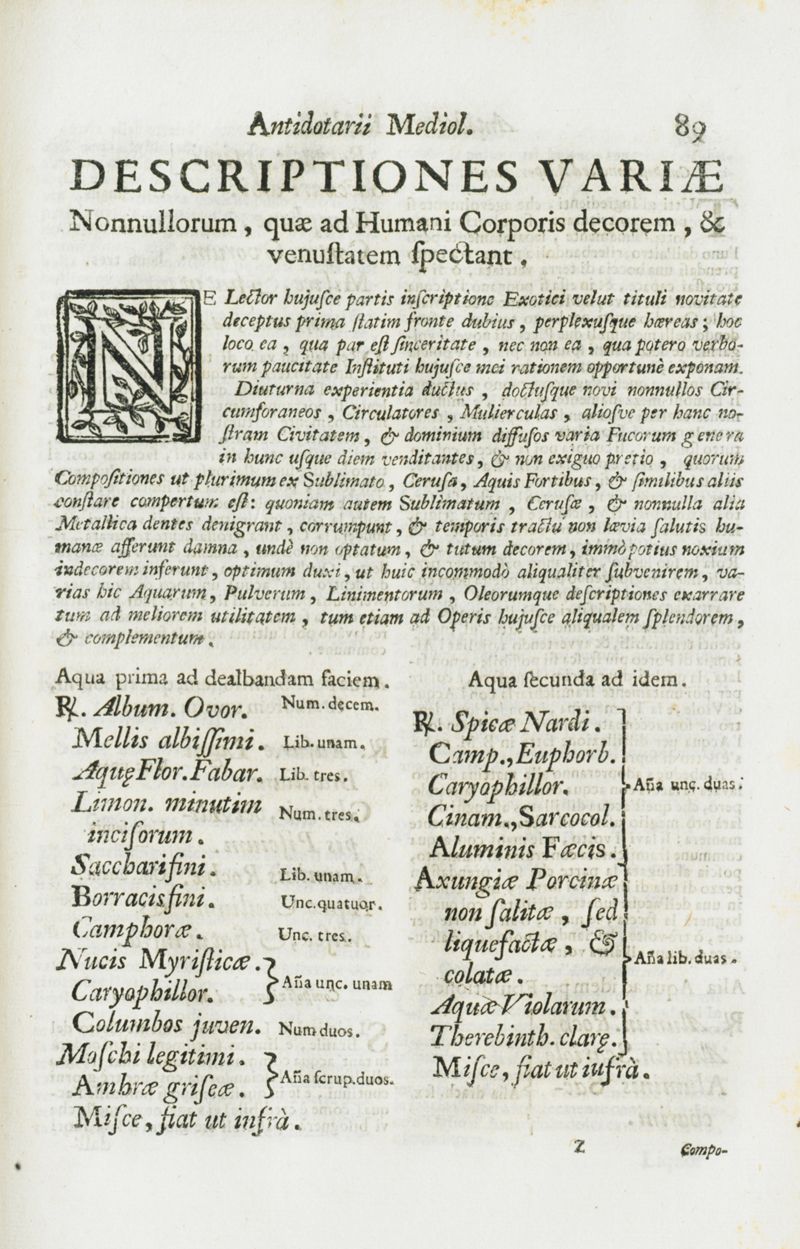 Antidotarii Mediol. 89
DESCRIPTIONES VARIÆ
Nonnullorum, quæ ad Humani Corporis decorem, &
venuſtatem ſpectant.
NE Lector hujuſce partis inſcriptione Exotici velut tituli novitate
deceptus prima ſtatim fronte dubius, perplexuſque hæreas; hoc
loco ea, qua par eſt ſinceritate, nec non ea, qua potero verbo-
rum paucitate Inſtituti hujuſce mei rationem opportunè exponam.
Diuturna experientia ductus, doctuſque novi nonnullos Cir-
cumforaneos, Circulatores, Mulierculas, alioſve per hanc no-
ſtram Civitatem, & dominium diffuſos varia Fucorum genera
in hunc uſque diem venditantes, & non exiguo pretio, quorum
Compoſitiones ut plurimum ex Sublimato, Ceruſa, Aquis Fortibus, & ſimilibus aliis
conſtare compertum eſt: quoniam autem Sublimatum, Ceruſæ, & nonnulla alia
Metallica dentes denigrant, corrumpunt, & temporis tractu non lævia ſalutis hu-
manæ afferunt damna, undè non optatum, & tutum decorem, immò potius noxium
indecorem inferunt, optimum duxi, ut huic incommodò aliqualiter ſubvenirem, va-
rias hic Aquarum, Pulverum, Linimentorum, Oleorumque deſcriptiones exarrare
tum ad meliorem utilitatem, tum etiam ad Operis hujuſce aliqualem ſplendorem,
& complementum.
Aqua prima ad dealbandam faciem.
℞. Album. Ovor. Num. decem.
Mellis albiſſimi. Lib. unam.
Aquę Flor. Fabar. Lib. tres.
Limon. minutim Num. tres.
inciſorum.
Sacchari fini. Lib. unam.
Borracis fini. Unc. quatuor.
Camphoræ. Unc. tres.
Nucis Myriſticæ.
Caryophillor. Aña unc. unam
Columbos juven. Num duos.
Moſchi legitimi.
Ambræ griſeæ. Aña ſcrup. duos.
Miſce, fiat ut infrà.
Aqua ſecunda ad idem.
℞. Spicæ Nardi.
Camp., Euphorb.
Caryophillor. Aña unc. duas.
Cinam., Sarcocol.
Aluminis Fæcis.
Axungiæ Porcinæ
non ſalitæ, ſed
liquefactæ, & Aña lib. duas.
colatæ.
Aquæ Violarum.
Therebinth. clarę.
Miſce, fiat ut iufrà.
Z Compo-